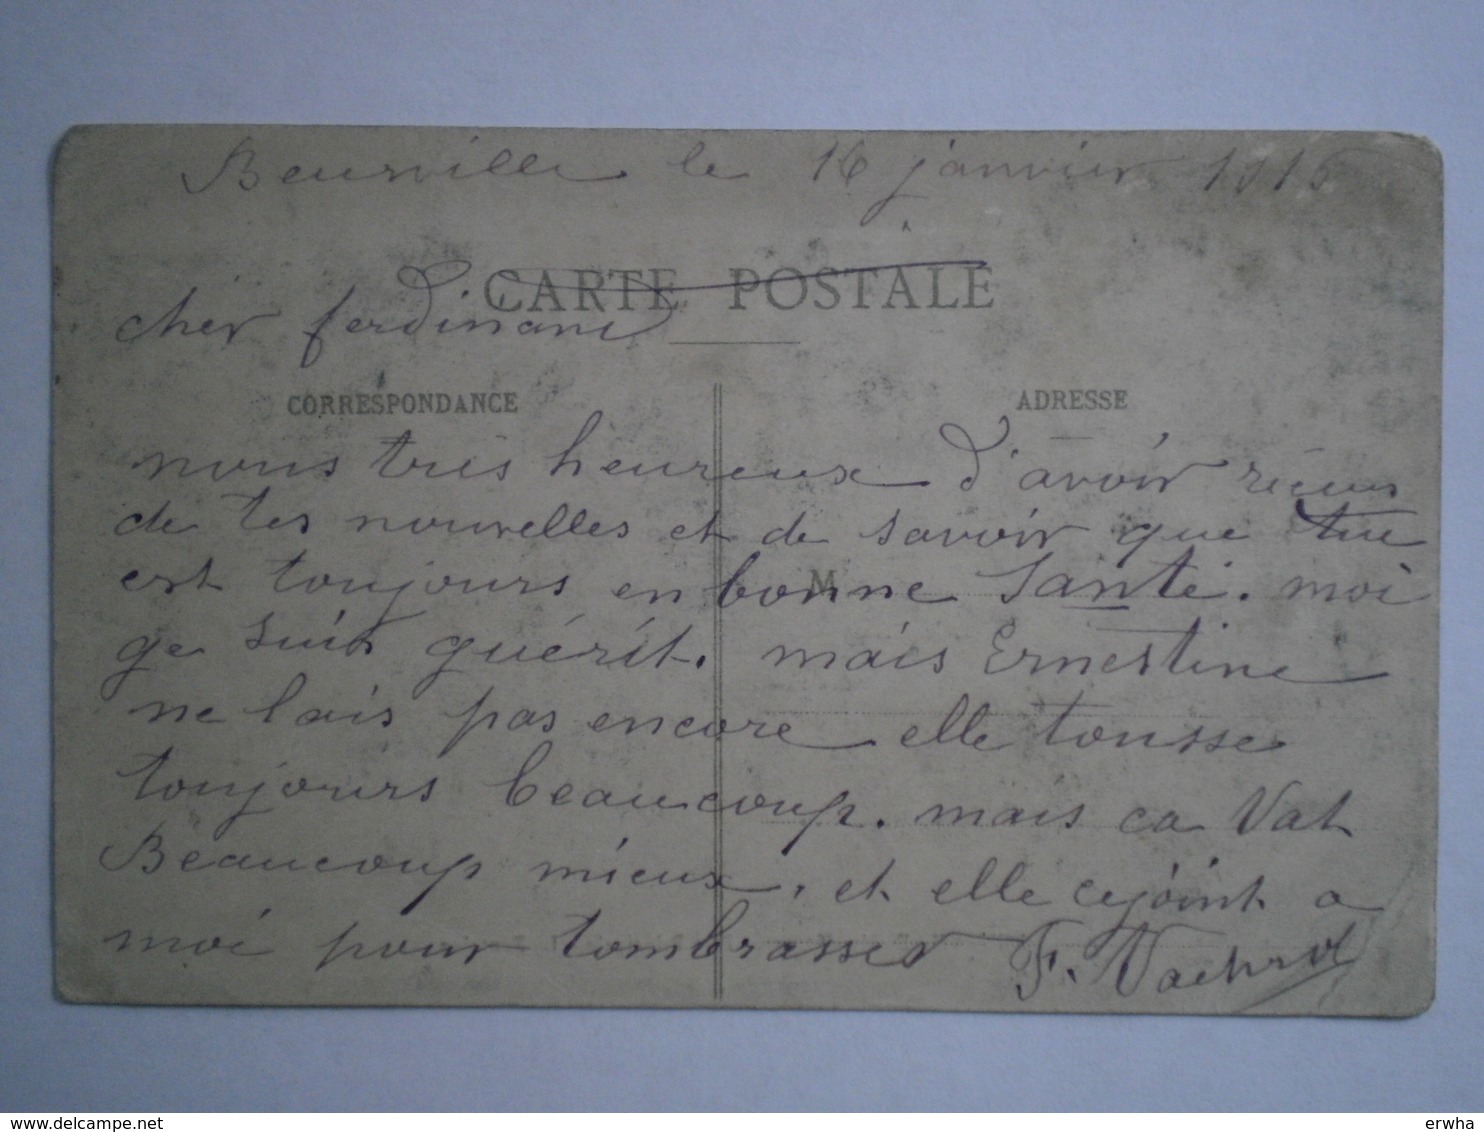 Beurville le 16 janvier 1916
CARTE POSTALE
cher ferdinand
CORRESPONDANCE
ADRESSE
nous tres heureux d'avoir réçus
de tes nouvelles et de savoir que tue
est toujours en bonne Santé. moi
M
ge suis guérit. mais Ernestine
ne lais pas encore elle tousse
toujours beaucoup. mais ca Vat
Beaucoup mieux, et elle cejoint a
moi pour tombrasser F. Vachrot
delcampe.net
erwha